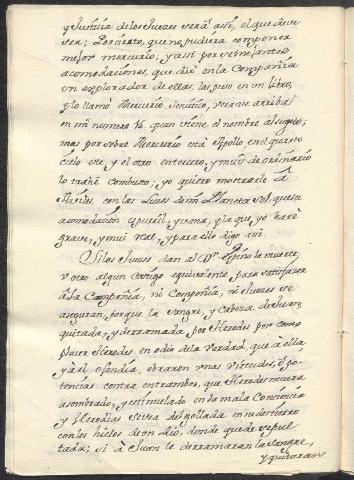 y Justicia de los Jueces verà assi, el que deve
ver; Por cierto, que no pudiera componer
mejor mercurio; y assi por ver semejantes
acomodaciones, que dio en la Compañia
un explorador de ellas, las puso en un libro,
y lo llamò Mercurio Jesuitico, veanse arriba
en mi numero 16 quan viene el nombre al sugeto;
mas por sobre Mercurio està Apollo, en el quarto
cielo este, y el otro en tercero, y muy de ordinario
lo trahe combusto; yo quiero mostrarle à
con las Luces de mi Planeta Sol, que su
acomodacion es pueril, y vana, y la que yo harè
grave, y mui real, y para ello digo assi.
Si los Jueces dan al Dr. Espino la muerte,
u otro algun Castigo equivalente para satisfacer
à la Compañia, ni Compañia, ni Jueces se
aseguran, porque la sangre, y Cabeza de Juan,
quitada, y derramada por Herodes por com
placer Herodes, en odio de la verdad, que à ella,
y à el ofendia, obraron unas virtudes, ò po-
tencias contra entrambos, que Herodes muera
asombrado, y estimulado en la mala Conciencia
y Herodias sea degollada en su destierro
con los hielos de un Rio, donde quede sepul
tada; si à Juan le derramaran la Sangre,
y quitaran